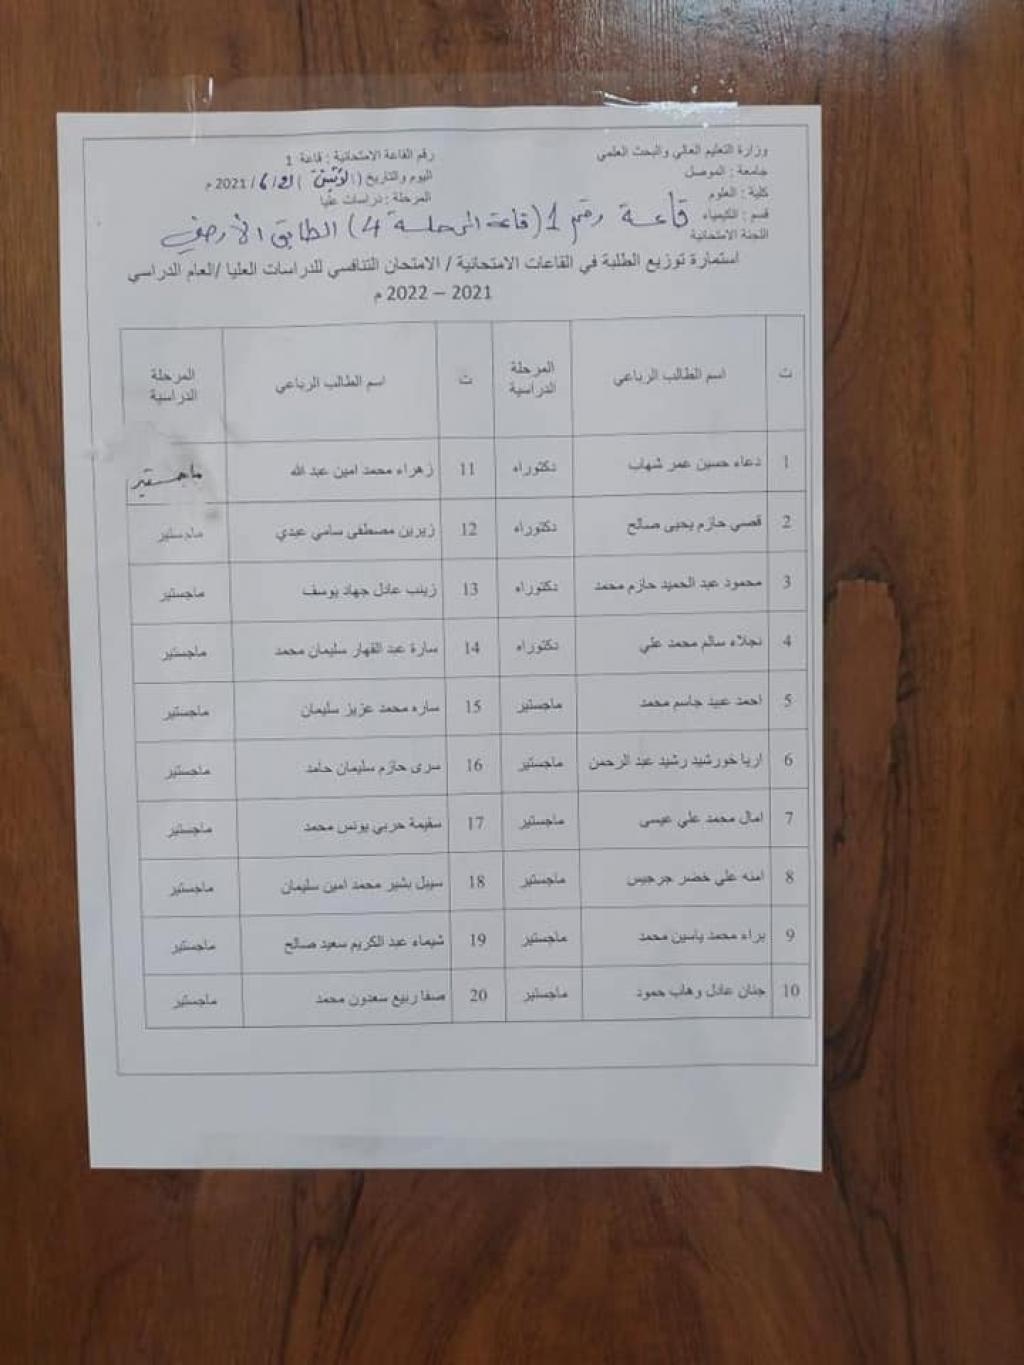 وزارة التعليم العالي والبحث العلمي
جامعة : الموصل
كلية : العلوم
قسم : الكيمياء
اللجنة الامتحانية
رقم القاعة الامتحانية : قاعة 1
اليوم والتاريخ ( الاثنين ) 21 / 6 / 2021 م
المرحلة : دراسات عليا
قاعة رقم 1 (قاعة المرحلة 4) الطابق الأرضي
استمارة توزيع الطلبة في القاعات الامتحانية / الامتحان التنافسي للدراسات العليا /العام الدراسي
2021 – 2022 م
ت اسم الطالب الرباعي المرحلة الدراسية ت اسم الطالب الرباعي المرحلة الدراسية
1 دعاء حسين عمر شهاب دكتوراه 11 زهراء محمد امين عبد الله ماجستير
2 قصي حازم يحيى صالح دكتوراه 12 زيرين مصطفى سامي عبدي ماجستير
3 محمود عبد الحميد حازم محمد دكتوراه 13 زينب عادل جهاد يوسف ماجستير
4 نجلاء سالم محمد علي دكتوراه 14 سارة عبد القهار سليمان محمد ماجستير
5 احمد عبيد جاسم محمد ماجستير 15 ساره محمد عزيز سليمان ماجستير
6 اريا خورشيد رشيد عبد الرحمن ماجستير 16 سرى حازم سليمان حامد ماجستير
7 امال محمد علي عيسى ماجستير 17 سفيمة حربي يونس محمد ماجستير
8 امنه علي خضر جرجيس ماجستير 18 سيبل بشير محمد امين سليمان ماجستير
9 براء محمد ياسين محمد ماجستير 19 شيماء عبد الكريم سعيد صالح ماجستير
10 جنان عادل وهاب حمود ماجستير 20 صفا ربيع سعدون محمد ماجستير